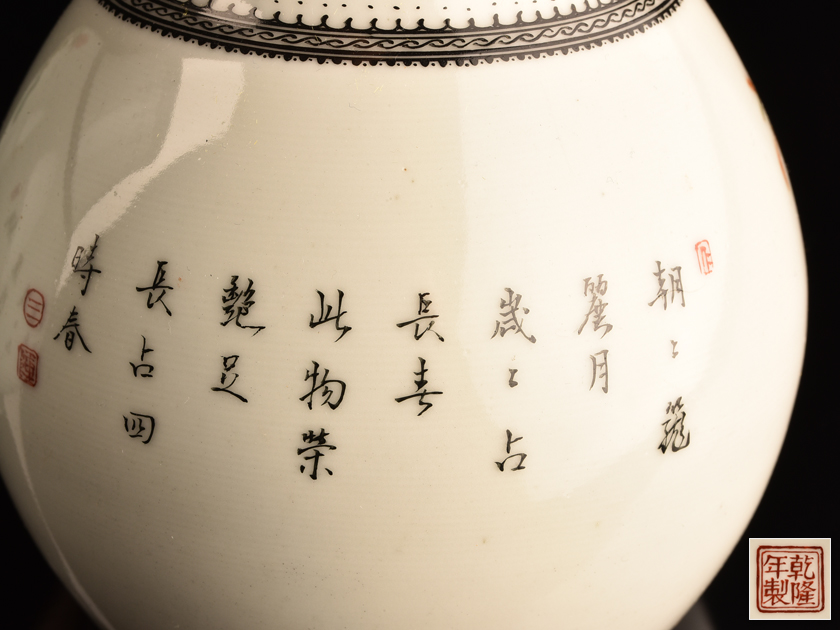 朝〻籠
麗月
歲〻占
長春
此物榮
艷足
長占四
時春
乾隆
年製